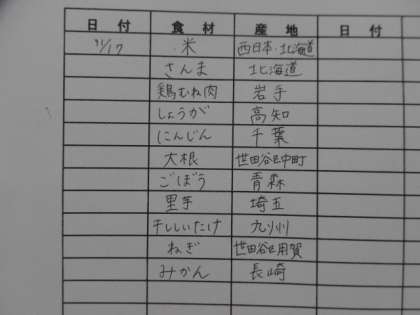 日付 食材 産地 日付
11/17 米 西日本・北海道
さんま 北海道
鶏むね肉 岩手
しょうが 高知
にんじん 千葉
大根 世田谷区中町
ごぼう 青森
里芋 埼玉
干ししいたけ 九州
ねぎ 世田谷区用賀
みかん 長崎